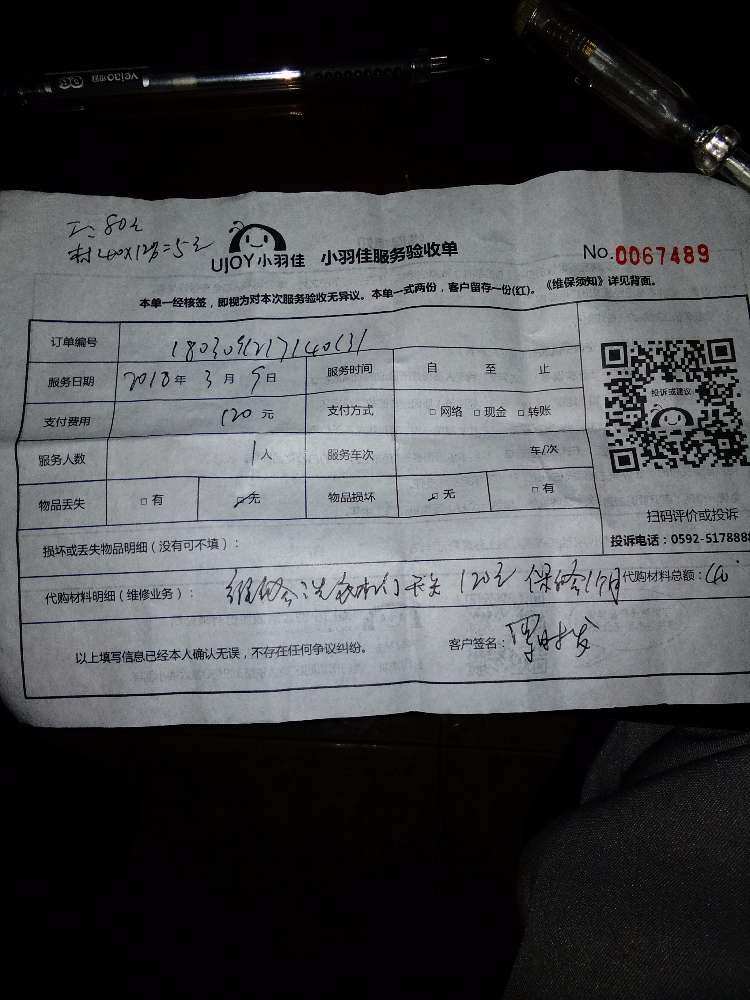 veiao
工: 80元
UJOY小羽佳 小羽佳服务验收单
No.0067489
本单一经核签，即视为对本次服务验收无异议。本单一式两份，客户留存一份(红)。《维保须知》详见背面。
订单编号
服务日期 2018年 3月 9日 服务时间 自 至 止
支付费用 120元 支付方式 □网络 □现金 □转账
服务人数 1人 服务车次 车/次
物品丢失 □有 □无 物品损坏 □无 □有
投诉或建议
扫码评价或投诉
投诉电话：0592-5178888
损坏或丢失物品明细（没有可不填）：
代购材料明细（维修业务）： 开关 120元 保修1个月 代购材料总额：40
以上填写信息已经本人确认无误，不存在任何争议纠纷。 客户签名：